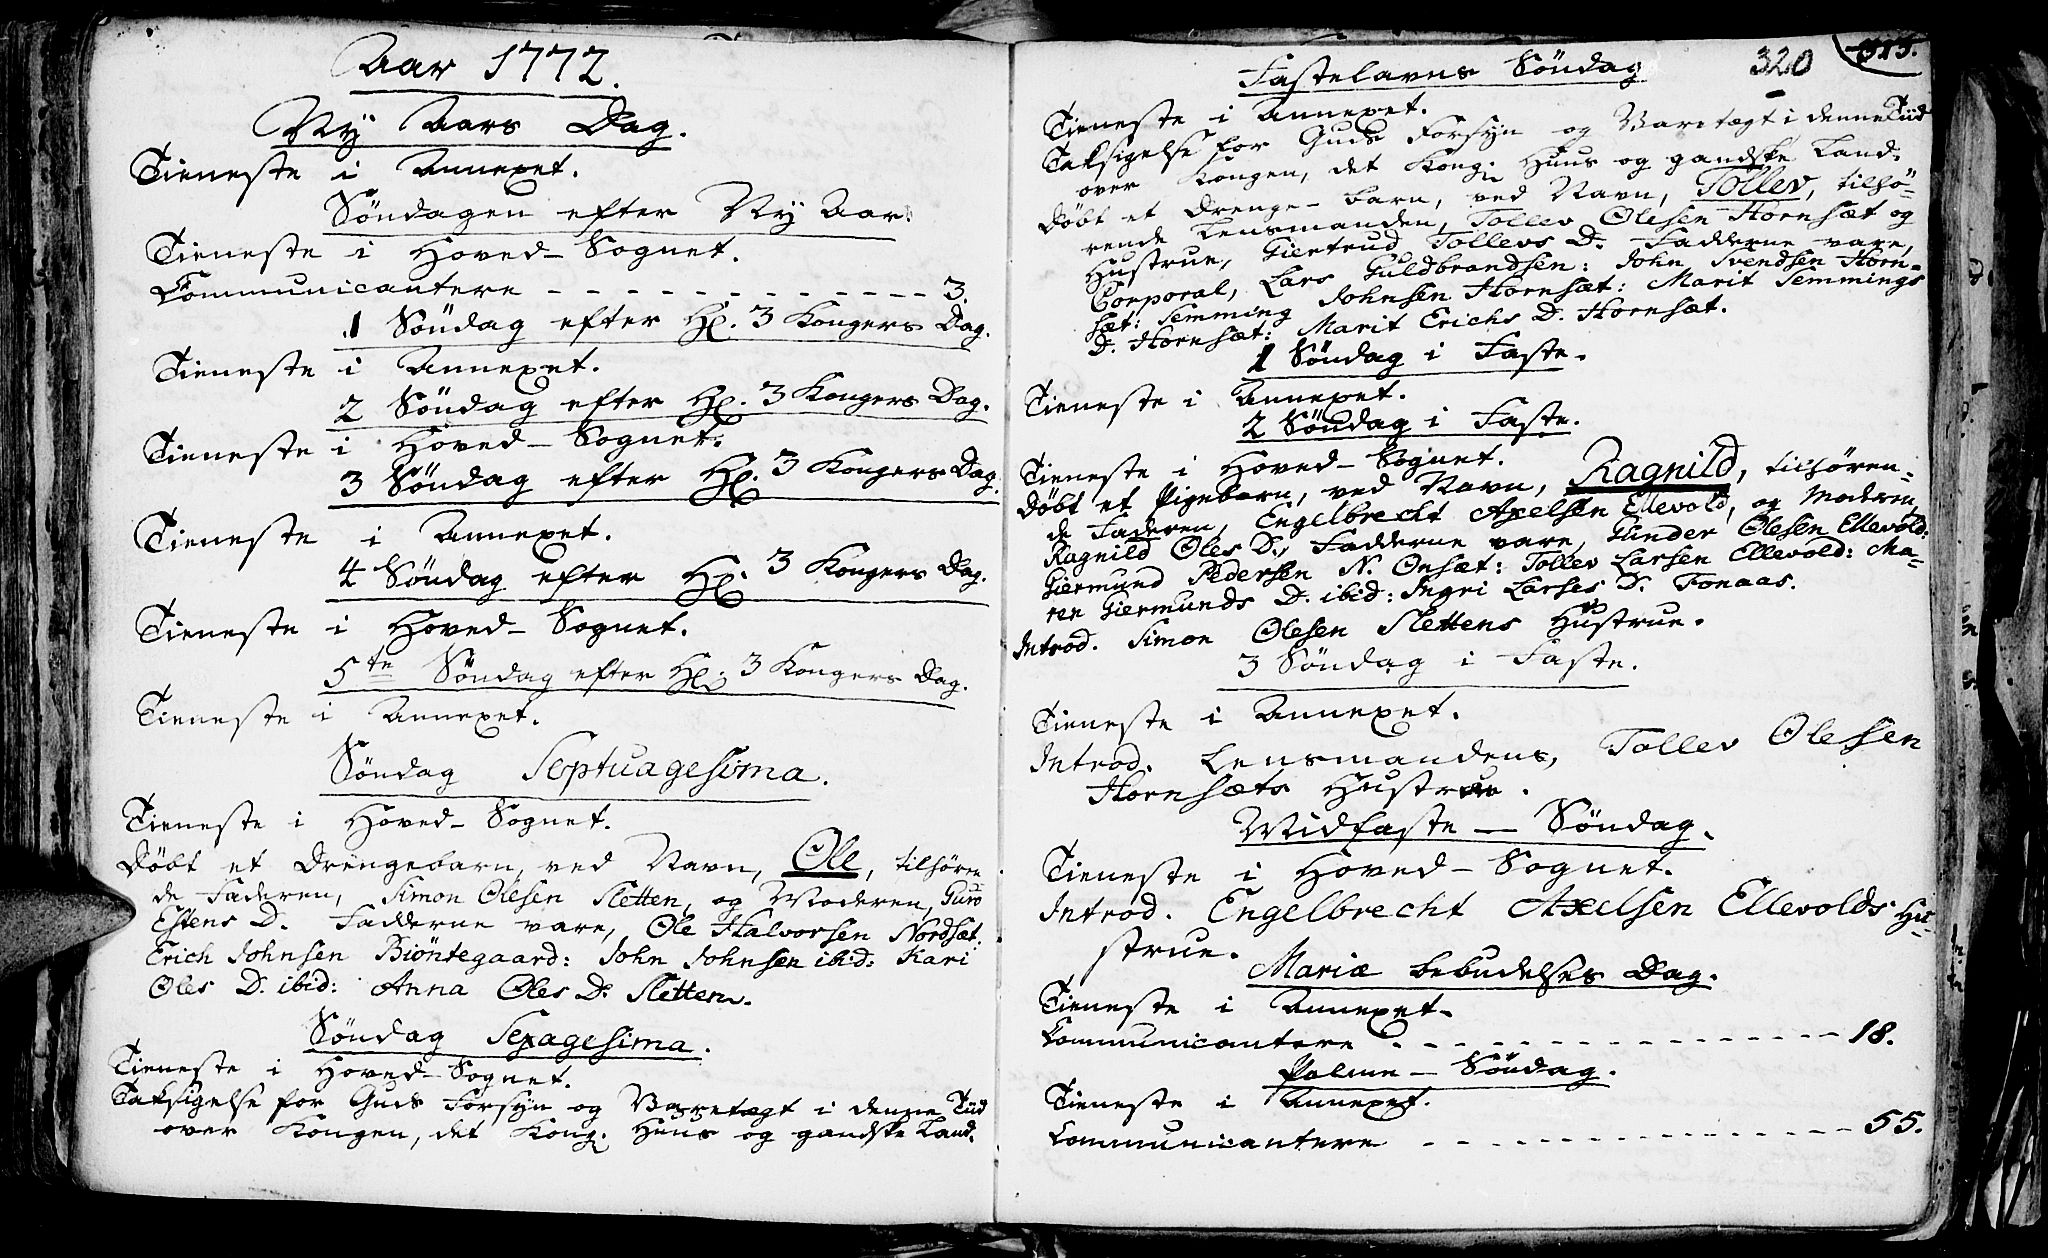 Aar 1772.
Ny Aars Dag.
Tieneste i Annexet.
Söndagen efter Ny Aar.
Tieneste i Hoved-Sognet.
Communicantere - - - - - - - - - - - - - 3.
1 Söndag efter Hl. 3 Kongers Dag.
Tieneste i Annexet.
2 Söndag efter Hl. 3 Kongers Dag.
Tieneste i Hoved-Sognet.
3 Söndag efter Hl. 3 Kongers Dag.
Tieneste i Annexet.
4 Söndag efter Hl. 3 Kongers Dag.
Tieneste i Hoved-Sognet.
5te Söndag efter Hl. 3 Kongers Dag.
Tieneste i Annexet.
Söndag Septuagesima.
Tieneste i Hoved-Sognet.
Döbt et Drengebarn, ved Navn, Ole, tilhören
de Faderen, Simon Olesen Sletten, og Moderen, Guro
Estens D. Fadderne vare, Ole Halvorsen Nordsæt:
Erich Johnsen Biöntegaard: John Johnsen ibid: Kari
Oles D. ibid: Anna Oles D. Sletten.
Söndag Sexagesima.
Tieneste i Hoved-Sognet.
Taksigelse for Guds Forsyn og Varetægt i denne Tiid
over Kongen, det Kong. Huus og gandske Land.
Fastelavns Söndag
320
315.
Tieneste i Annexet.
Taksigelse for Guds Forsyn og Varetægt i denne Tiid
over Kongen, det Kong. Huus og gandske Land.
Döbt et Drenge-barn, ved Navn, Tollev, tilhö-
rende Lensmanden, Tollev Olesen Hornsæt og
Hustrue, Giertrud Tollevs D. Fadderne vare,
Corporal, Lars Guldbrandsen: John Svendsen Horn-
sæt: Semming Johnsen Hornsæt: Marit Semmings
D. Hornsæt: Marit Erichs D. Hornsæt.
1 Söndag i Faste.
Tieneste i Annexet.
2 Söndag i Faste.
Tieneste i Hoved-Sognet.
Döbt et Pigebarn, ved Navn, Ragnild, tilhören-
de Faderen, Engelbrecht Axelsen Ellevold, og Moderen,
Ragnild Oles D., Fadderne vare, Gunder Olesen Ellevold:
Giermund Pedersen N. Onsæt: Tollev Larsen Ellevold: Ma-
ren Giermunds D. ibid: Ingri Larses D. Fonaas.
Introd. Simon Olesen Slettens Hustrue.
3 Söndag i Faste.
Tieneste i Annexet.
Introd. Lensmandens, Tollev Olesen
Hornsæts Hustrue.
Midfaste - Söndag.
Tieneste i Hoved-Sognet.
Introd. Engelbrecht Axelsen Ellevolds Hu-
strue.
Mariæ bebudelses Dag.
Tieneste i Annexet.
Communicantere - - - - - - - - - - - - - - - 18.
Palme - Söndag.
Tieneste i Annexet.
Communicantere - - - - - - - - - - - - - - - 55.